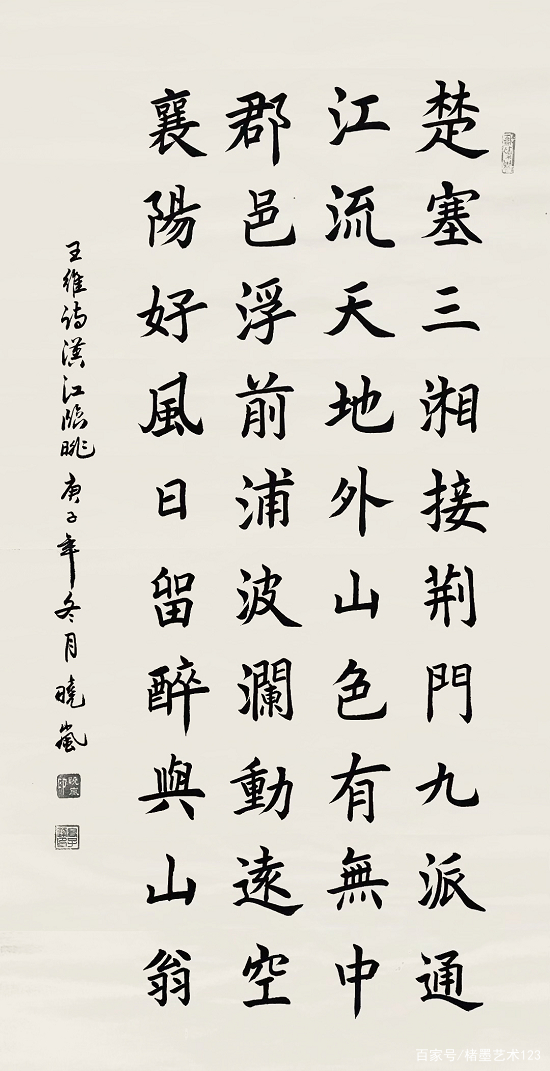 楚塞三湘接荆門九派通
江流天地外山色有無中
郡邑浮前浦波瀾動遠空
襄陽好風日留醉與山翁
王維詩漢江臨眺庚子年冬月曉嵐
百家号/楮墨艺术123